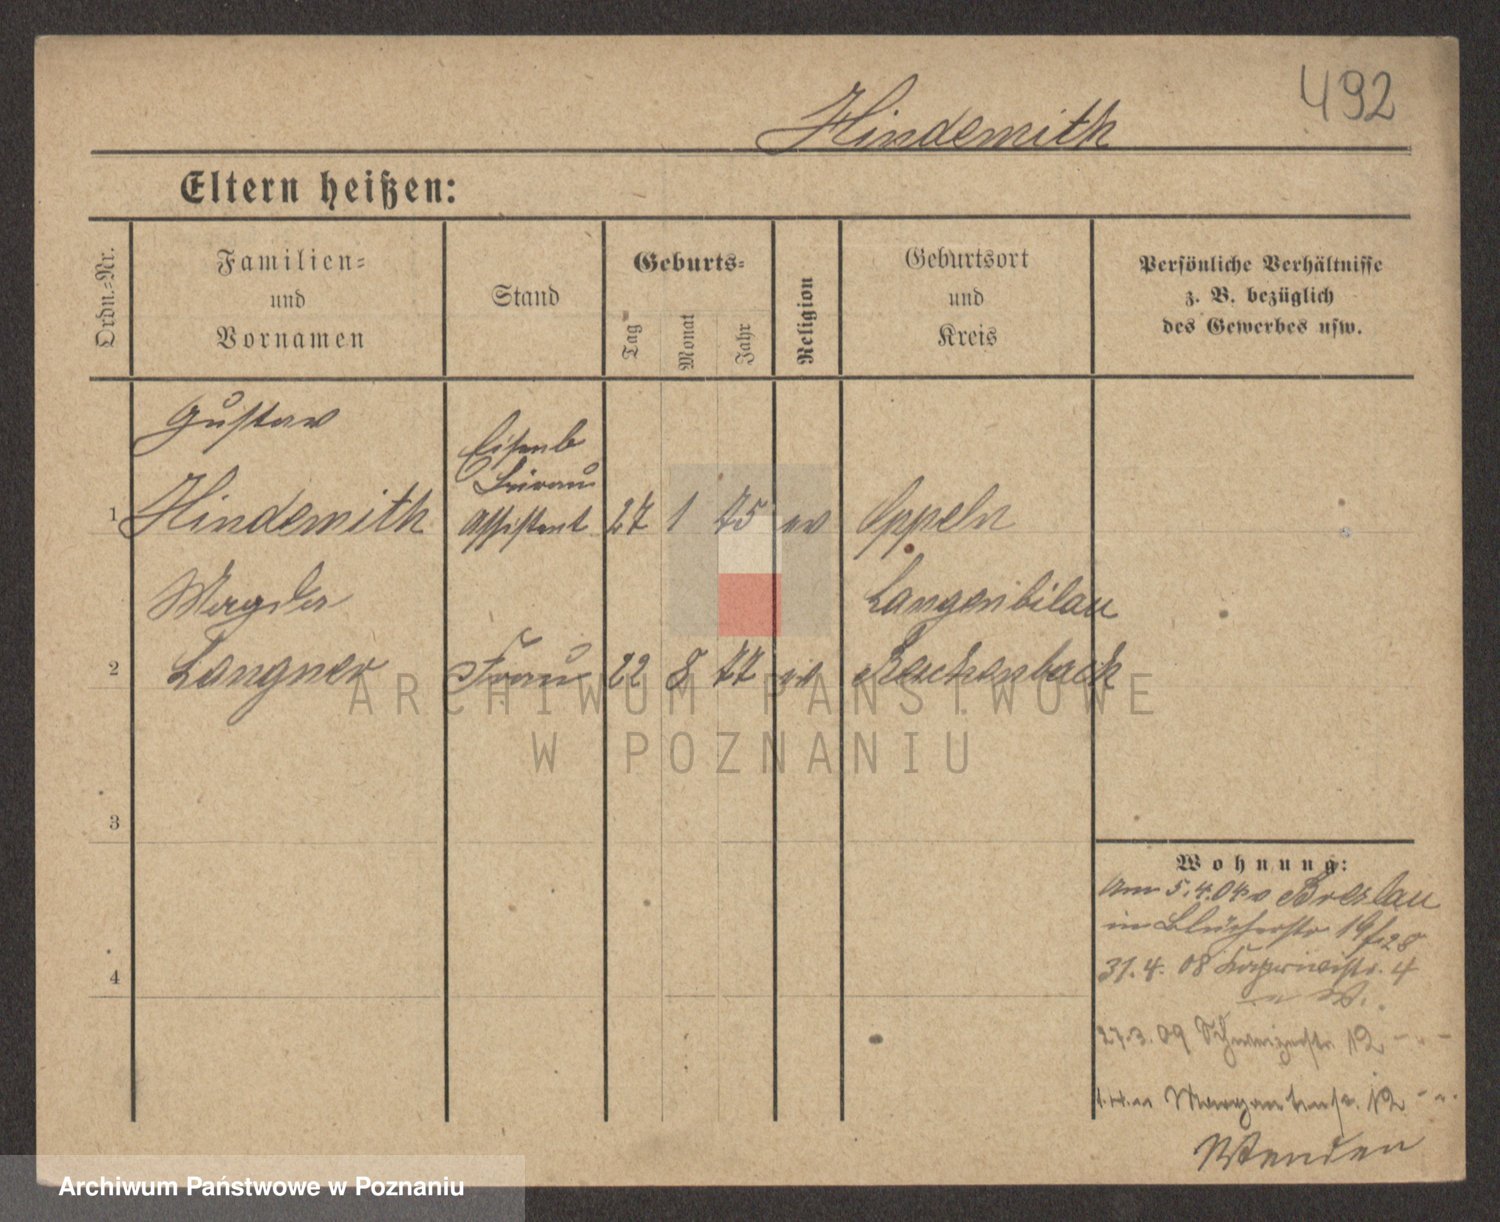 492
Hindemith
Eltern heißen:
Ordn.-Nr.
Familien-
und
Vornamen
Stand
Geburts-
Tag
Monat
Jahr
Religion
Geburtsort
und
Kreis
Persönliche Verhältnisse
z. B. bezüglich
des Gewerbes usw.
Gustav
Eisenb
Büreau
1 Hindemith Assistent 27 1 75 ev Oppeln
Magda Langenbilau
2 Langner Frau 22 8 77 ev Reichenbach
ARCHIWUM PAŃSTWOWE
W POZNANIU
3
4
Wohnung:
Am 5.4.04 v Breslau
in Blücherstr 19
31.4.08 4
27.3.09 12
12
Wenden
Archiwum Państwowe w Poznaniu